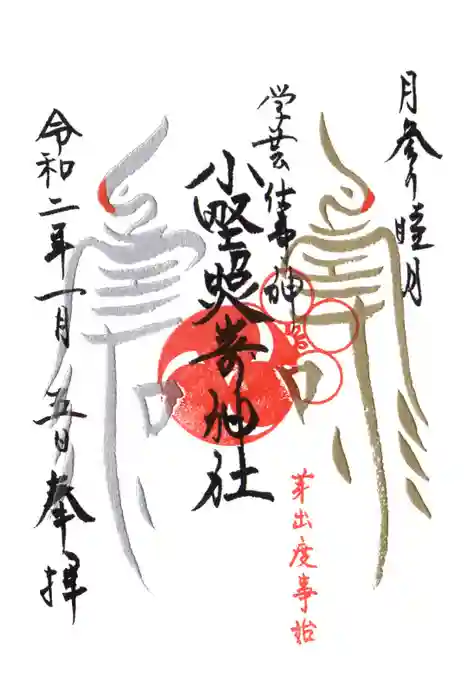 月参り睦月
学芸仕事神
小野照崎神社
芽出度事始
令和二年一月五日奉拝